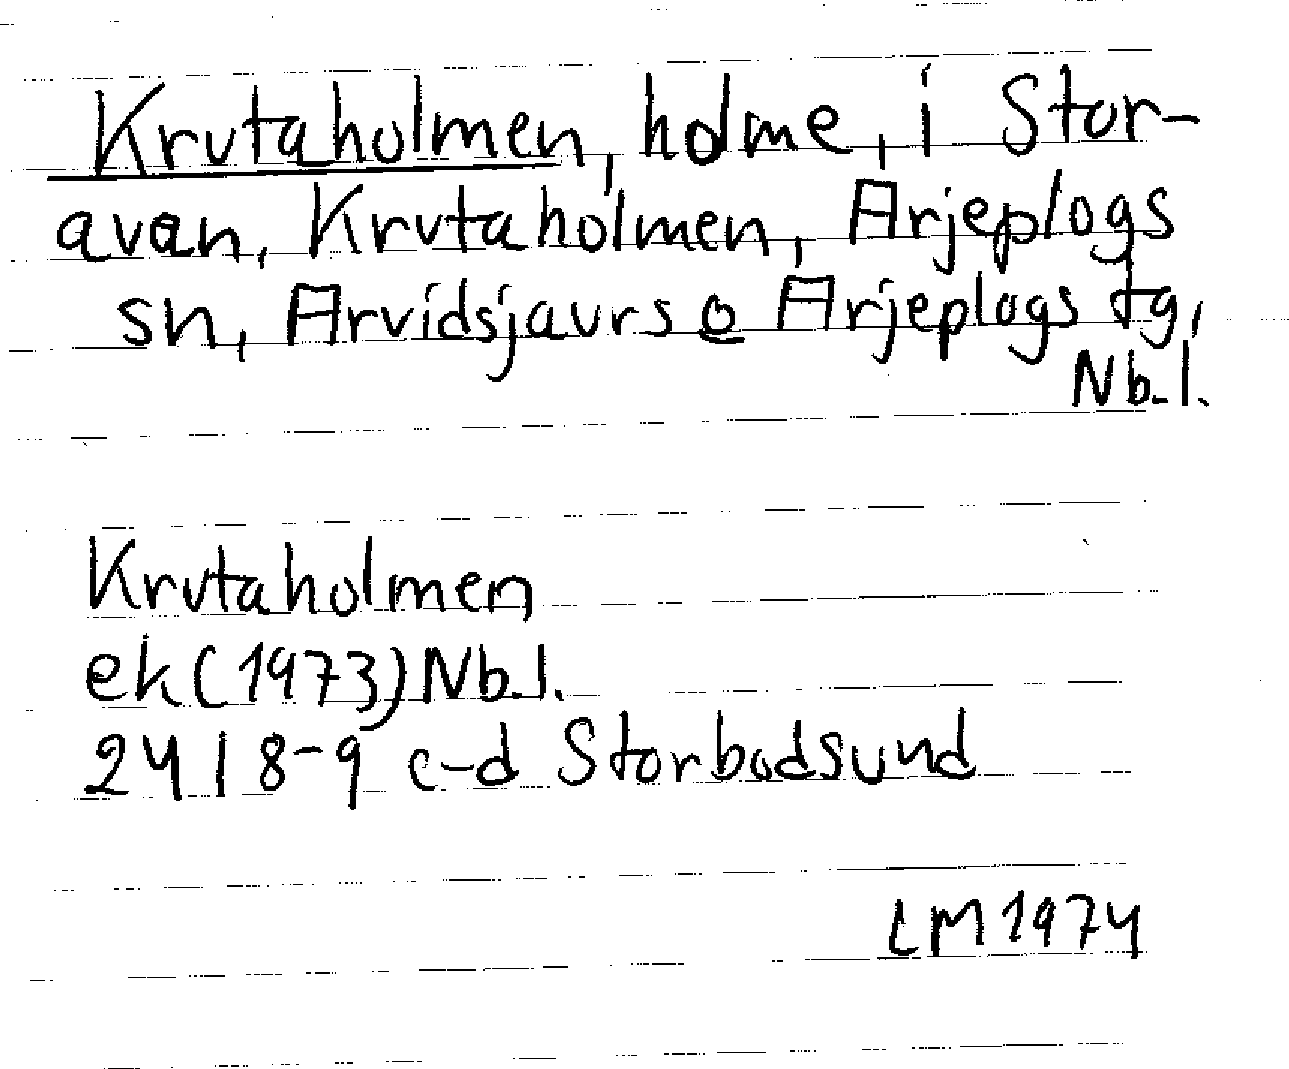 Krutaholmen, holme, i Stor-
avan, Krutaholmen, Arjeplogs
sn, Arvidsjaurs o Arjeplogs tg,
Nb.l.
Krutaholmen
ek (1973) Nb.l.
24 I 8-9 c-d Storbodsund
LM 1974